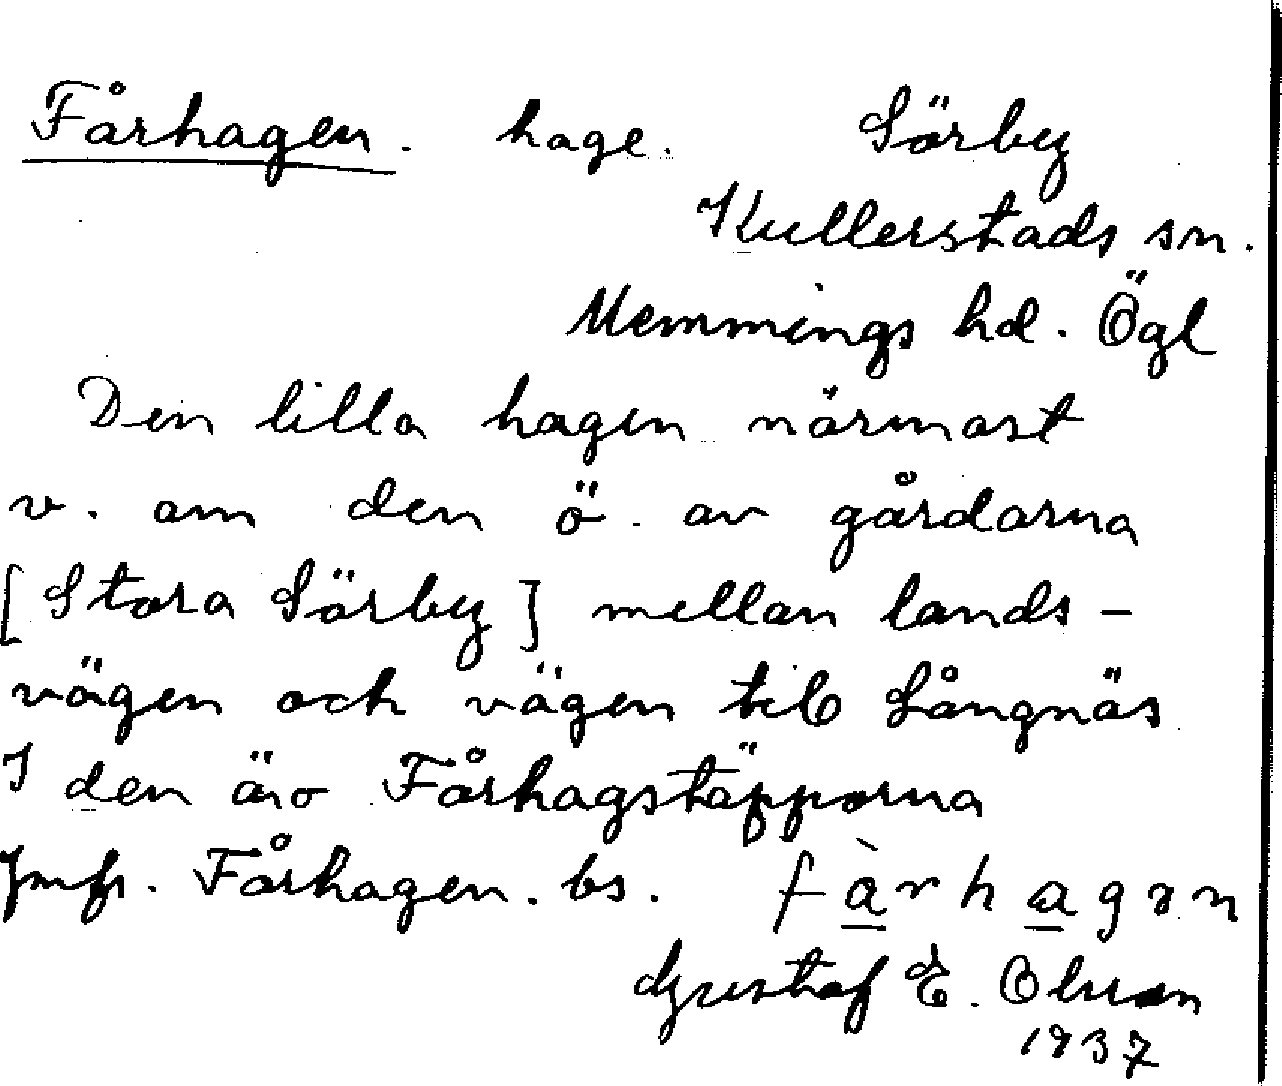 Fårhagen. hage. Sörby
Kullerstads sn.
Memmings hd. Ögl
Den lilla hagen närmast
v. om den ö. av gårdarna
[Stora Sörby] mellan lands-
vägen och vägen till Långnäs
I den äro Fårhagstäpporna
Jmfr. Fårhagen. bs. fàrhagɤn
Gustaf E. Olsson
1937